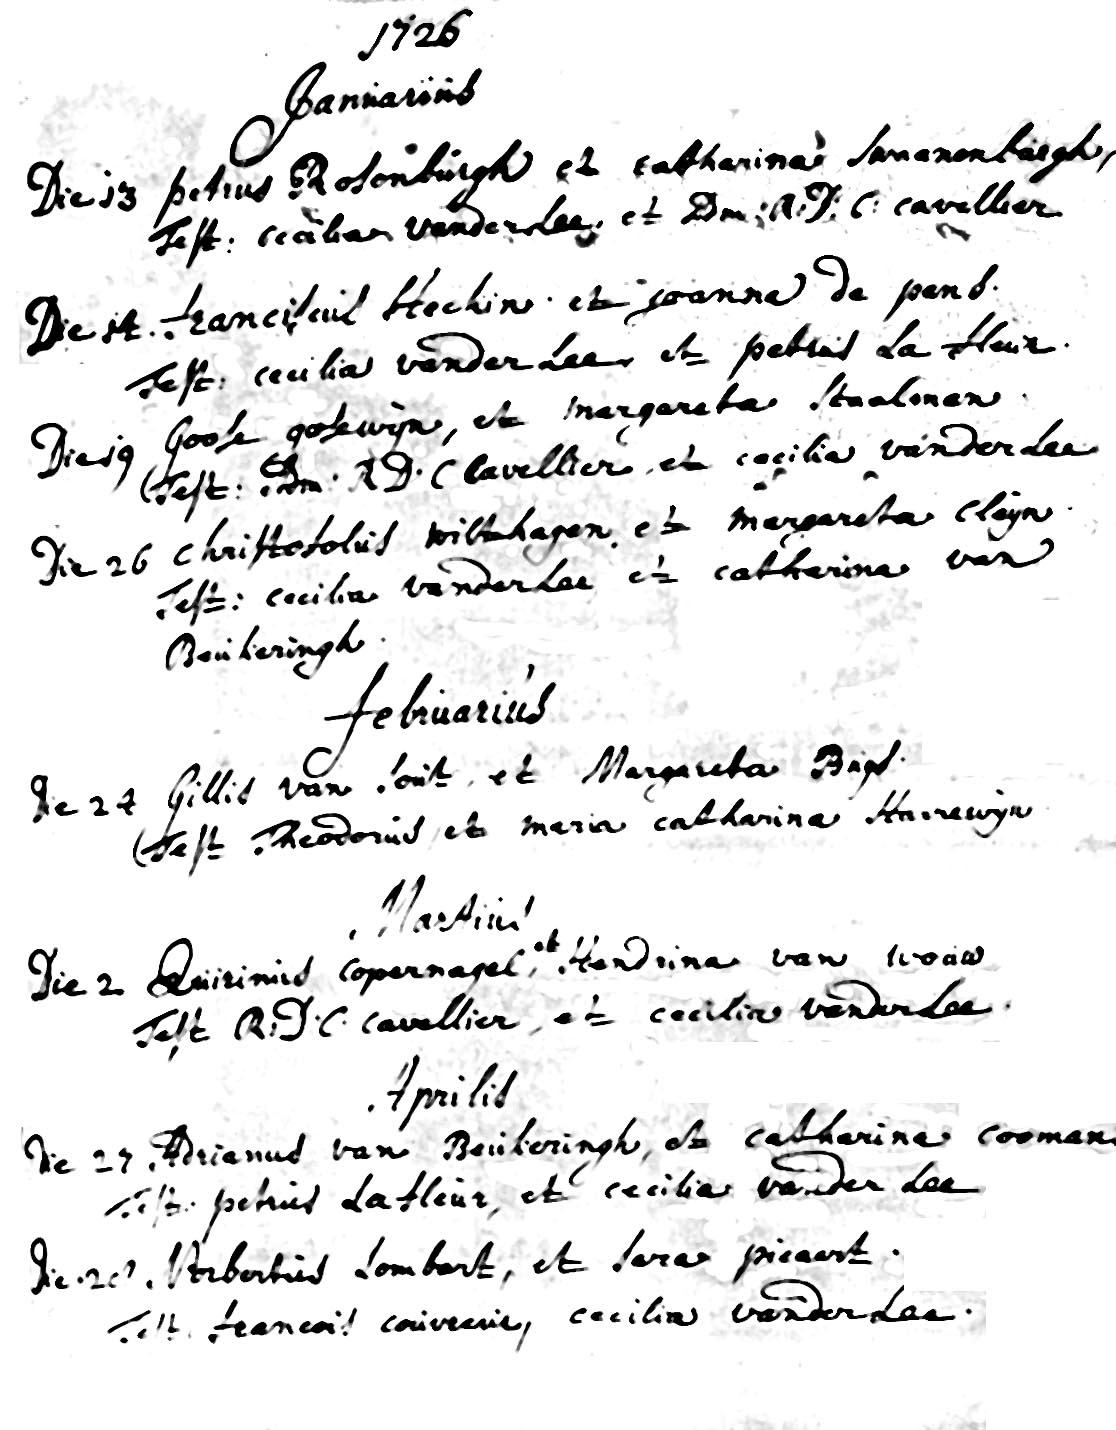 1726
Januarius
Die 13 petrus Rosenburgh et catharina Swanenburgh,
Test: cecilia vander Lee, et Dm: R: D: C: cavellier
Die 14. franciscus Stechin et joanna de pens.
Test: cecilia vander Lee, et petrus La fleur.
Die 19 Goose gosewijn, et margareta Staalman.
(Test: Dm: R D: C Cavellier et cecilia vander Lee
Die 26 christofolus wilthagen, et margareta cleijn.
Test: cecilia vander Lee et catharina van
Beukeringh.
februarius
Die 24 Gillis van Sout, et Margareta Buijs.
(Test Theodorus et maria catharina Harrewijn
Martius
Die 2 Quirinus copernagel, et Hendrina van wouw
Test R: D: C: cavellier, et cecilia vander Lee.
Aprilis
Die 27 Adrianus van Beukeringh, et catharina cooman
Test: petrus La fleur, et cecilia vander Lee
Die 28 Norbertus Lombart, et Sara picaert.
Test. francois couvreur, cecilia vander Lee.